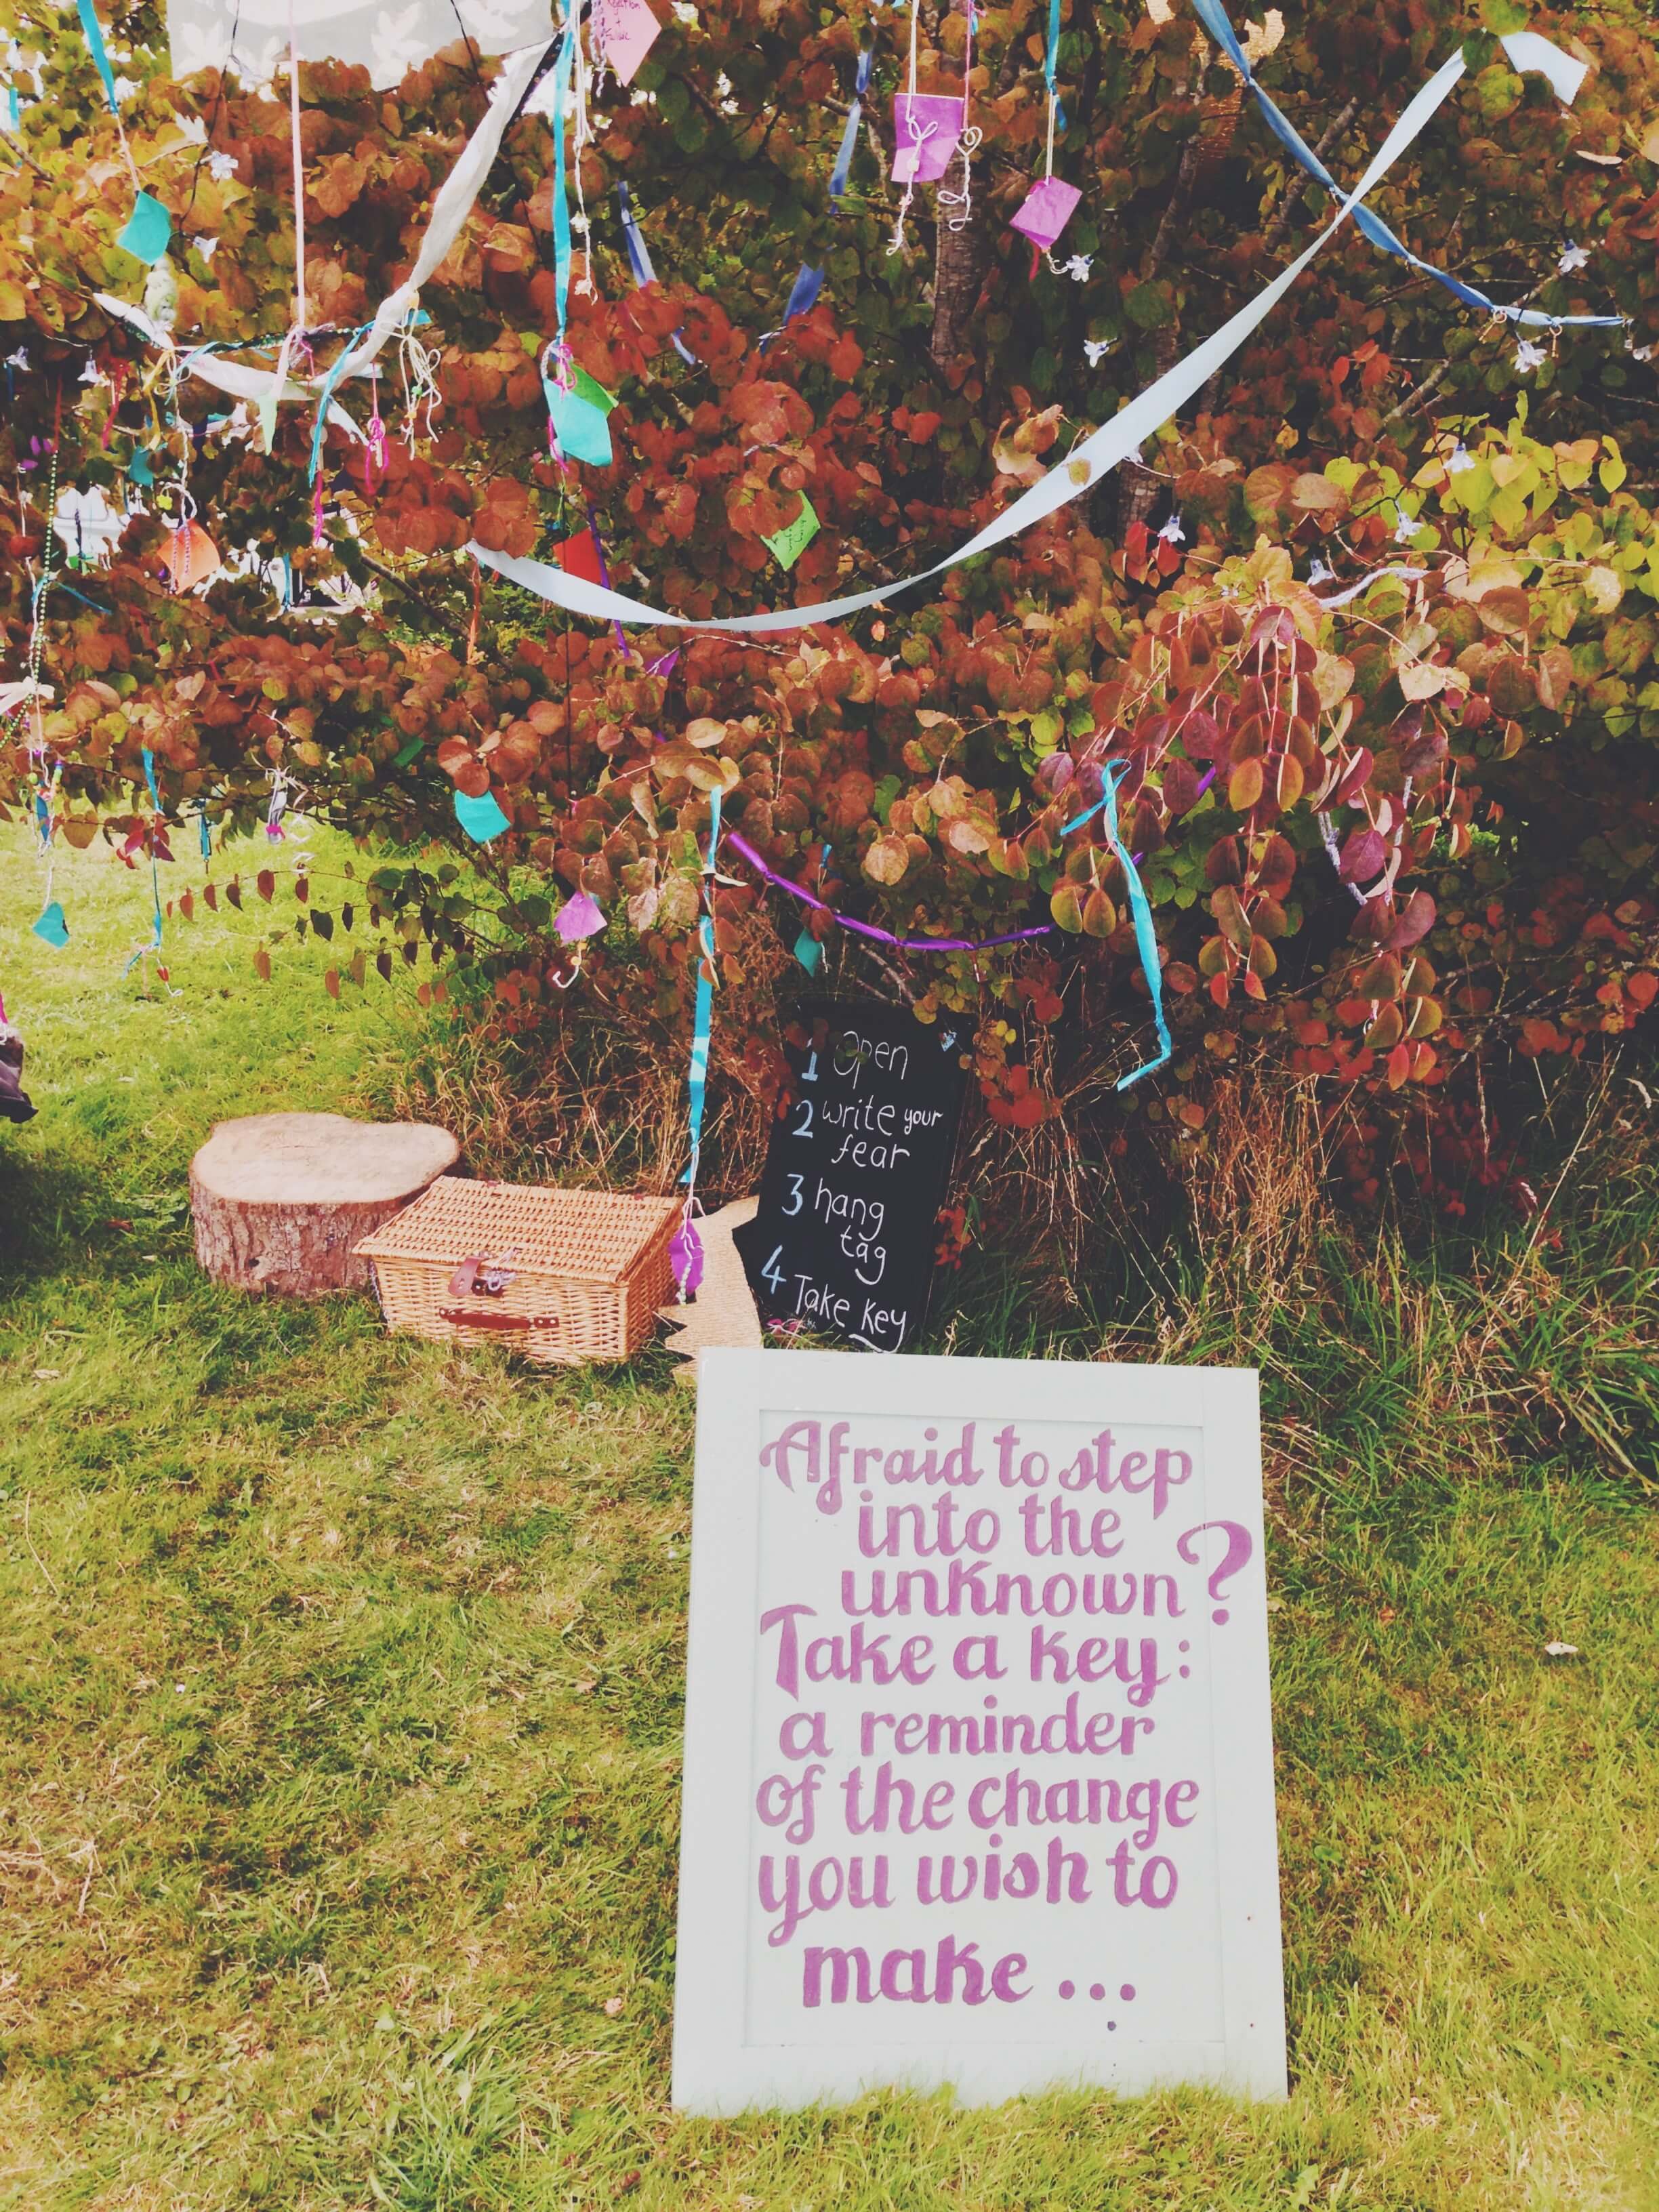 1 Open
2 write your
fear
3 hang
tag
4 Take key
Afraid to step
into the
unknown?
Take a key:
a reminder
of the change
you wish to
make ...